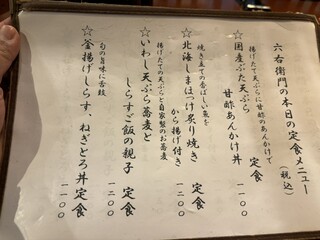 六右衛門の本日の定食メニュー
(税込)
揚げたて天ぷらに甘酢のあんかけで
☆国産ぶた天ぷら 定食
甘酢あんかけ丼 一一〇〇
焼き立ての香ばしい魚を
☆北海しまほっけ炙り焼き 定食
から揚げ付き 一一〇〇
揚げたての天ぷらと自家製のお蕎麦
☆いわし天ぷら蕎麦と
しらすご飯の親子 定食 一二〇〇
旬の旨味に舌鼓
☆釜揚げしらす、ねぎとろ丼定食
一一〇〇